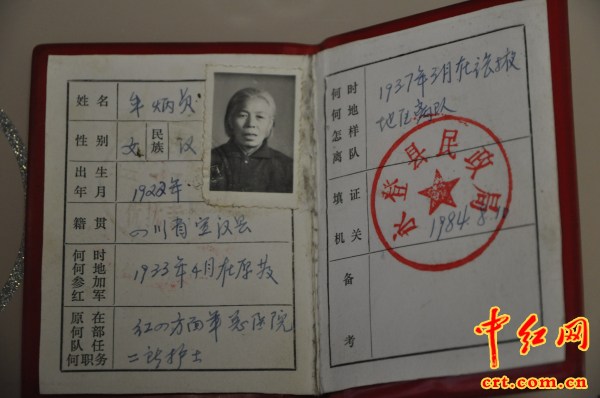 姓名 牟炳贞
性别 女 民族 汉
出生年月 1922年.
籍贯 四川省宣汉县
何时何地参加红军 1933年4月在原籍
原在何部队任何职务 红四方面军总医院
二所护士
何时何地怎样离队 1937年3月在张掖
地区离队
填证机关 永登县民政局
1984.8.
备考
中红网
crt.com.cn